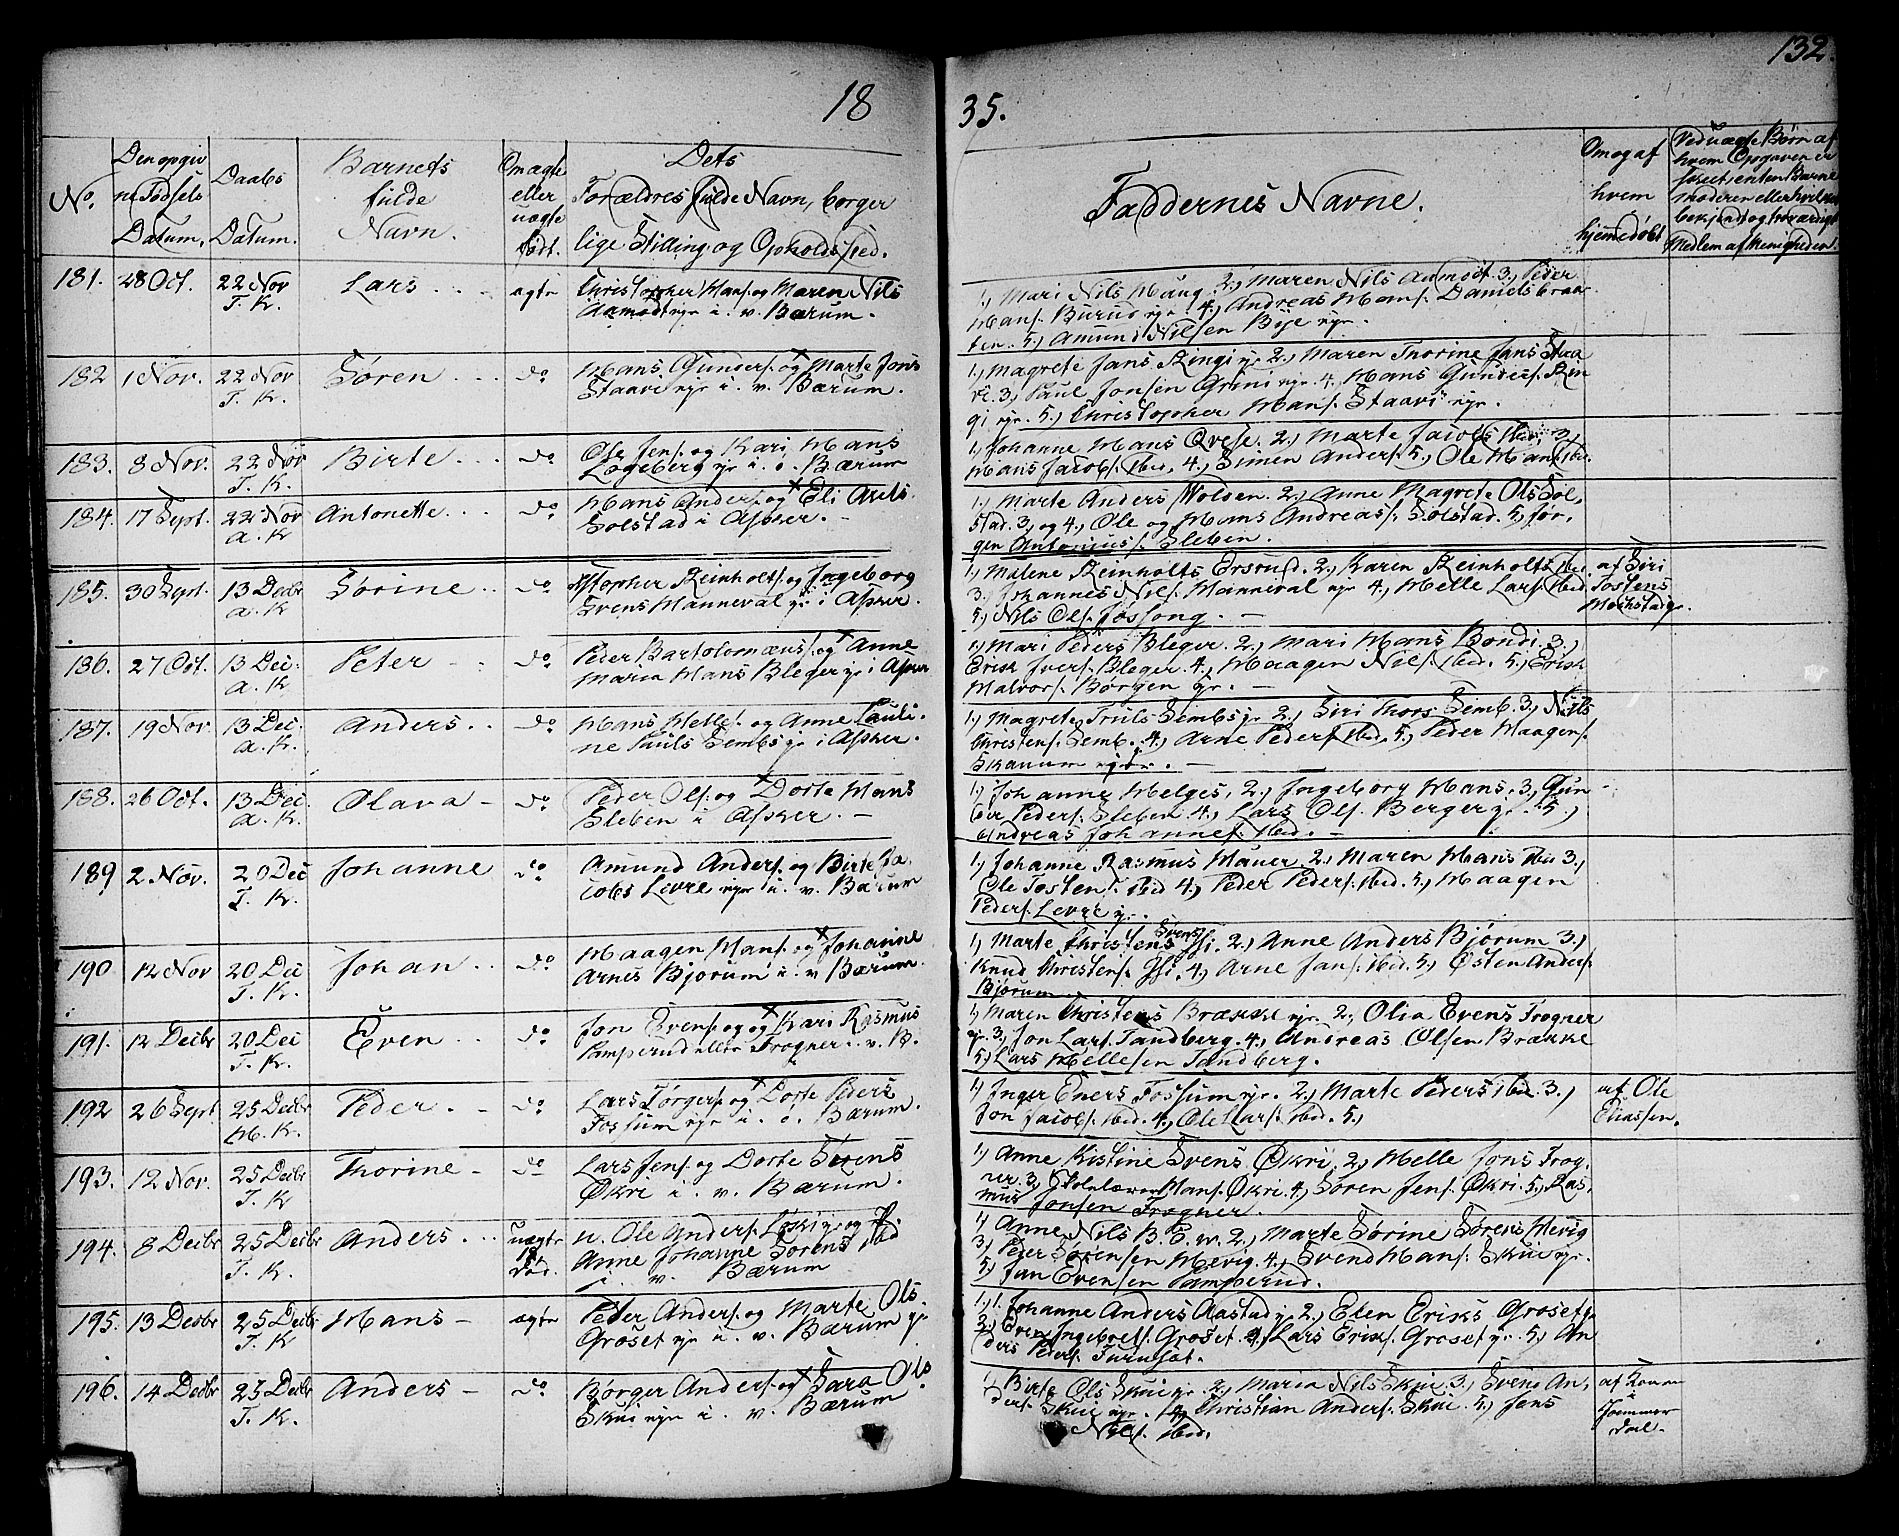 132.
18 35.
No.
Den opgiv
ne Fødsels
Datum.
Daabs
Datum.
Barnets
fulde
Navn.
Om ægte
eller
uægte
født.
Dets
Forældres fulde Navn, borger
lige Stilling og Opholdssted.
Faddernes Navne.
Om og af
hvem
hjemedøbt
Ved uægte Børn af
hvem Opgaven er
skeet, enten Barne
moderen eller
bekjendt og troværdigt
Medlem af Menigheden.
181. 28 Oct. 22 Nov Lars ægte Christopher Hans. og Maren Nils
T. K. Aamodt egr i. v. Bærum.
1, Mari Nils Haug 2, Maren Nils Aamodt. 3, Peder
Hans. Burud egr. 4, Andreas Hans. Daniels braa
ten. 5, Amund Nilsen Bye egr.
182 1 Nov. 22 Nov Søren do Hans Gunders. og Marte Jons
T. K. Staavi egr i. v. Bærum.
1, Magrete Jans Ringi gr 2, Maren Thorine Jans Staa
vi 3, Paul Jonsen Grini egr. 4, Hans Gunders. Rin
gi egr. 5, Christopher Hans. Staavi egr.
183. 8 Nov. 22 Nov Birte do Ole Jens. og Kari Hans
T. K. Løgeberg egr i. ø. Bærum
1, Johanne Hans Qvese. 2, Marte Jacobs Ibid. 3,
Hans Jacobs. Ibid, 4, Simen Anders. 5, Ole Hans. Ibid.
184. 17 Sept. 22 Nov Antonette do Hans Anders. og Eli Axels
A. K Solstad i Asker.
1, Marte Anders Wolden. 2, Anne Magrete Ols Sol,
stad. 3, og 4, Ole og Hans Andreas. Solstad. 5, Jør,
gen Antonius. Sleben.
185. 30 Sept. 13 Decbr Sørine do Xstopher Reinholts. og Ingeborg
A. K Svens Manneval gr i Asker.
1, Malene Reinholts Ersrud. 2, Karen Reinholts Ibid
3, Johannes Nils. Manneval egr 4, Helle Lars. Ibid
5, Nils Ols. Jøssong.
af Siri
Tostens
Hochstad gr.
186. 27 Oct. 13 Dec. Peter do Peder Bartolomæus. og Anne
A. K Maria Hans Bleger gr i Asker
1, Mari Peders Bleger. 2, Mari Hans Bondi. 3,
Erik Ivers. Bleger. 4, Haagen Nils. Ibid. 5, Erik
Halvors. Børgen gr.
187. 19 Nov. 13 Dec. Anders do Hans Helles. og Anne Pauli
A. K. ne Pauls Sembs gr i Asker.
1, Magrete Truls Sembs gr 2, Siri Thors Semb. 3, Nils
Christens. Semb. 4, Arne Peders. Ibid. 5, Peder Haagens.
Skanum egr.
188. 26 Oct. 13 Dec. Olava do Peder Ols. og Dorte Hans
A. K. Sleben i Asker.
1, Johanne Helges, 2, Ingeborg Hans, 3, Gun
der Peders. Sleben. 4, Lars Ols. Berger gr. 5,
Andreas Johannes. Ibid.
189 2 Nov. 20 Dec Johanne do Amund Anders. og Birte Ja,
T. K. cobs Levre egr i. v. Bærum
1, Johanne Rasmus Hauer. 2, Maren Hans Ibid 3,
Ole Tosten. Ibid 4, Peder Peders. Ibid. 5, Haagen
Peders. Levre gr.
190 12 Nov 20 Dec Johan do Haagen Hans. og Johanne
T. K. Arnes Bjorum i. v Bærum.
1, Marte Christens Svens Isi. 2, Anne Anders Bjørum 3,
Knud Christens. Isi. 4, Arne Jans. Ibid. 5, Østen Anders.
Bjørum
191. 12 Decbr 20 Dec Even do Jon Evens. og Kari Rasmus
T. K. Pamperud eller Trogner i. v. B.
1, Maren Christens Brække egr. 2, Olia Evens Trogner
gr. 3, Jon Lars. Tandberg. 4, Andreas Olsen Brække
5, Lars Hellesen Tandberg.
192 26 Sept 25 Decbr Peder do Lars Tørgers. og Dorte Peders
H. K. Fossum egr i. ø. Bærum.
1, Inger Eners Fossum egr. 2, Marte Peders Ibid. 3,
Jon Jacobs. Ibid. 4, Ole Lars. Ibid. 5,
af Ole
Eliassen.
193. 12 Nov. 25 Decbr Thorine do Lars Jens. og Dorte Sørens
T. K Økri i. v. Bærum.
1, Anne Kistine Svens Økri, 2, Helle Jons Trog,
ner. 3, Skolelærer Hans. Økri. 4, Søren Jens. Økri. 5, Ras,
mus Jonsen Trogner.
194. 8 Decbr 25 Decbr Anders uægte u. Ole Anders. Løski gr og P.
T. K. Anne Johanne Sørens
i. v. Bærum
1, Anne Nils B. E. v. 2, Marte Sørine Sørens Hevig
3, Peder Sørensen Hevig. 4, Svend Hans. Skui egr.
5, Jan Evensen Pamperud.
195. 13 Decbr 25 Decbr Hans ægte Peter Anders. og Marte Ols
T. K Groset egr i. v. Bærum gr
1, Johanne Anders Aastad gr 2, Elen Eriks Groset gr
3, Even Ingebrets. Groset. 4, Lars Eriks. Groset gr. 5, An
ders Peders. Jurusat.
196. 14 Decbr 25 Decbr Anders do Børger Anders. og Sara Ols
T. K. Skui egr i. v. Bærum
1, Birte Ols Skui gr. 2, Maria Nils Skui. 3, Svens An,
ders. Skui egr. 4, Christian Anders. Skui. 5, Jens
Nils. Ibid.